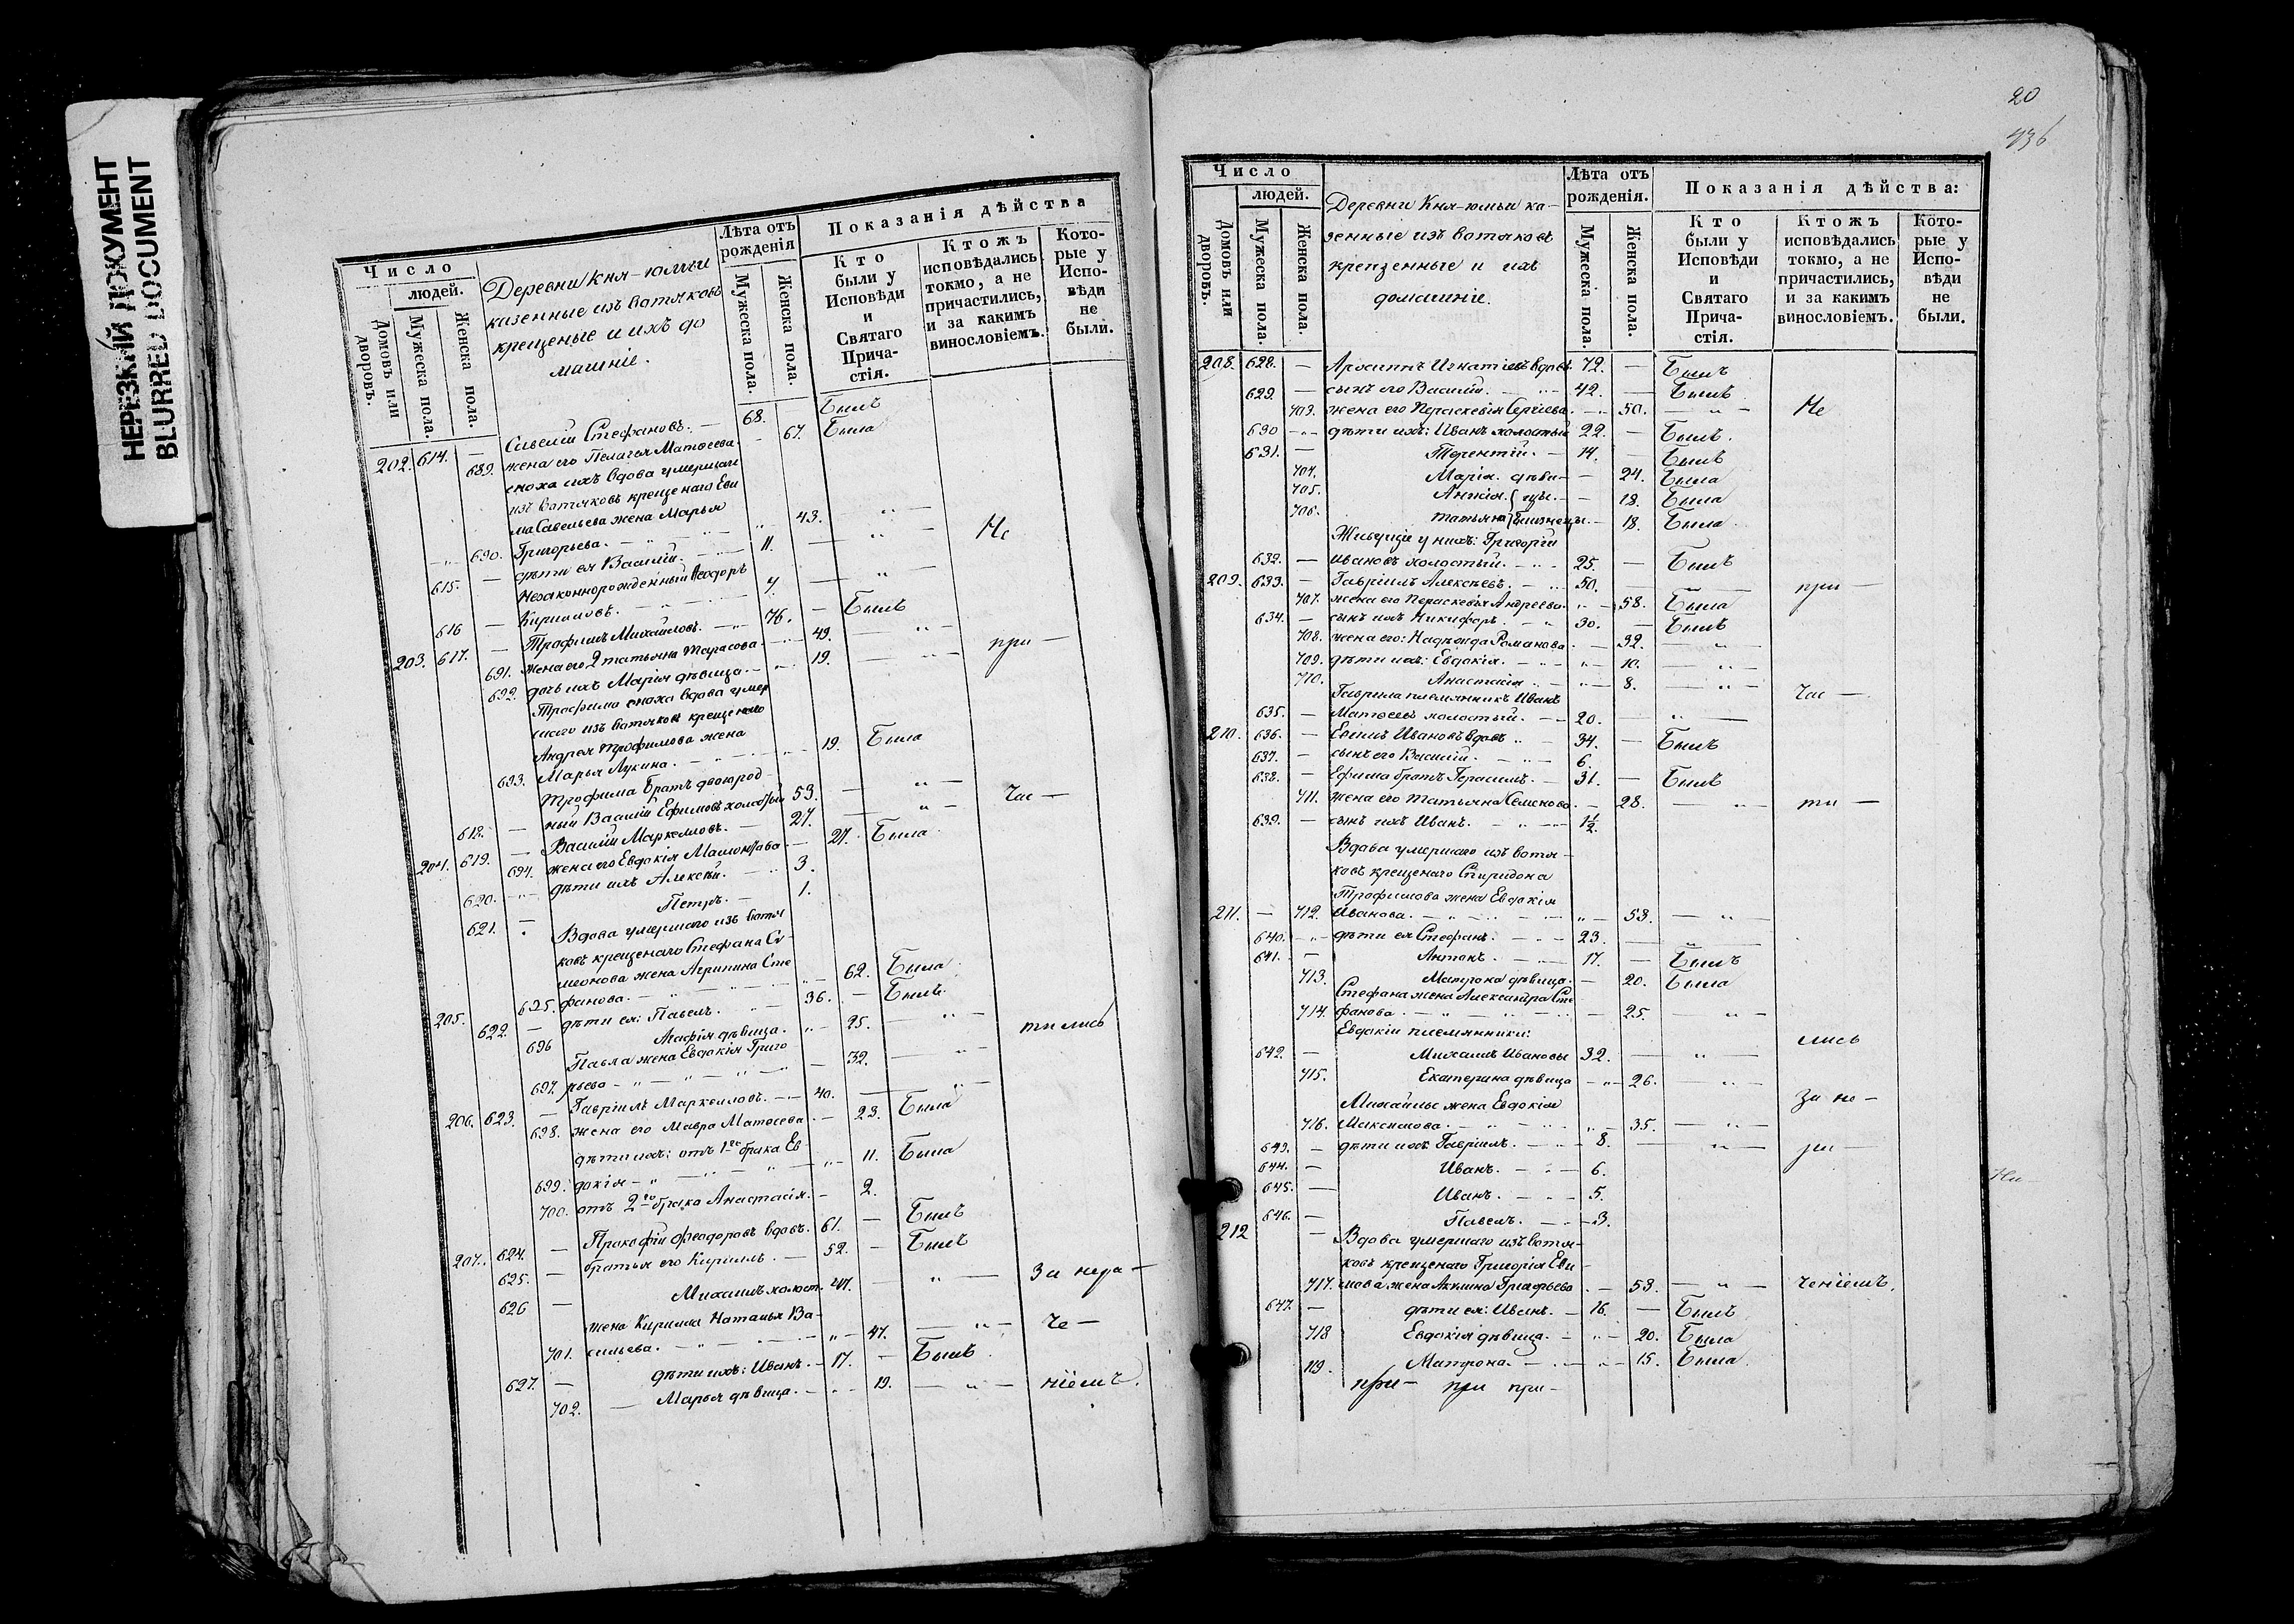 НЕРЕЗКИЙ ДОКУМЕНТ
BLURRED DOCUMENT
Число
людей.
Домовъ или дворовъ.
Мужеска пола.
Женска пола.
Деревни Кня-юмьи
казенные изъ вотяковъ
крещеные и ихъ до
машніе.
Лѣта отъ рожденія
Мужеска пола.
Женска пола.
Показанія дѣйства
Кто были у Исповѣди и Святаго Причастія.
Ктожъ исповѣдались токмо, а не причастились, и за какимъ винословіемъ.
Которые у Исповѣди не были.
202. 614. — Савелій Стефановъ. — 68. Былъ
689. жена его Пелагея Матвеева. — 67. Была
сноха ихъ вдова умершаго
изъ вотяковъ крещенаго Еви
ма Савельева жена Марья
690. Григорьева. — 43. — „ —
615. — дѣти ея Василій. — 11. — „ — Не
Незаконнорожденный Ѳеодоръ
616 — Кириловъ. — 7. — „ —
203. 617. — Трофимъ Михайловъ. — 76. — Былъ
691. жена его 2 Татьяна Тарасова. — 49. — „ —
692. дочь ихъ Марія дѣвица. — 19. — „ — при —
Трофима сноха вдова умер
шаго изъ вотяковъ крещенаго
Андрея Трофимова жена
693. Марья Лукина. — 19. Была
Трофима братъ двоюрод
618. — ный Василій Ефимовъ холостый 53. — „ —
204. 619. — Василій Маркеловъ. — 27. — „ — час —
694. жена его Евдокія Мамонтова — 27. Была
620. дѣти ихъ Алексѣй. — 3.
621. — Петръ. — 1.
Вдова умершаго изъ вотя
ковъ крещенаго Стефана Си
меонова жена Агрипина Сте
205. 695. фанова. — 62. Была
622. — дѣти ея: Павелъ. — 36. — Былъ
696 Агафія дѣвица. — 25. — „ —
Павла жена Евдокія Григо
697. рьева — 32. — „ — тились
206. 623. — Гавріилъ Маркелловъ. — 40. — „ —
698. жена его Мавра Матвеева. — 23. Была
дѣти ихъ: отъ 1го брака Ев
699. докія — 11. Была
700. отъ 2го брака Анастасія. — 2.
207. 624. — Прокофій Ѳеодоровъ вдовъ. 61. — Былъ
625. — братья его Кириллъ. — 52. — Былъ
626 — Михаилъ холост. 47. — „ — за нера —
жена Кирилла Наталья Ва-
701. сильева. — 47. — „ — че —
627. — дѣти ихъ: Иванъ. — 17. — Былъ
702. — Марья дѣвица. — 19. — „ — ніемъ.
20
436
Число
людей.
Домовъ или дворовъ.
Мужеска пола.
Женска пола.
Деревни Кня-юмьи ка-
зенные изъ вотяковъ
крещенные и ихъ
домашніе.
Лѣта отъ рожденія.
Мужеска пола.
Женска пола.
Показанія дѣйства:
Кто были у Исповѣди и Святаго Причастія.
Ктожъ исповѣдались токмо, а не причастились, и за какимъ винословіемъ.
Которые у Исповѣди не были.
208. 628. — Игнатіевъ вдовъ 72. — Былъ
629. — сынъ его Василій. — 42. — Былъ
703. жена его Параскевія Сергіева. — 50. — „ — Не
630 — дѣти ихъ: Иванъ холостый 22. — Былъ.
631. — Терентій. — 14. — Былъ
704. Марія. дѣви- — 24. Была
705. Анисія. } цы. — 18. Была
706. Татьяна } близнецы. — 18. Была
Живущіе у нихъ: Григорій
632. — Ивановъ холостый. — 25. — Былъ
209. 633. — Гавріилъ Алексѣевъ. — 50. — при —
707. жена его Параскевія Андреева. — 58. Была
634. — сынъ ихъ Никифоръ. — 30. — Былъ
708. жена его: Надежда Романова. — 32. — „ —
709. дѣти ихъ: Евдокія. — 10. — „ —
710. Анастасія — 8. — „ —
Гаврила племянникъ Иванъ час —
635. — Матвеевъ холостый. — 20. — „ —
210. 636. — Евѳимъ Ивановъ вдовъ — 34. — Былъ
637. — сынъ его Василій. — 6.
638. — Ефима братъ Герасимъ. — 31. — Былъ
711. жена его Татьяна Семенова. — 28. — „ — ти —
639. — сынъ ихъ Иванъ. — 1½.
Вдова умершаго изъ вотя-
ковъ крещенаго Спиридона
Трофимова жена Евдокія
211. — 712. Иванова. — 53. — „ —
640. — дѣти ея Стефанъ. — 23. — „ —
641. — Антонъ. — 17. — Былъ
713. Матрона дѣвица. — 20. Была
Стефана жена Александра Сте
714. фанова. — 25. — „ —
Евдокіи племянники:
642. — Михаилъ Ивановъ 32. — „ — лись
715. Екатерина дѣвица — 26. — „ —
Михаила жена Евдокія за не —
716. Максимова. — 35. — „ —
643. — дѣти ихъ Гавріилъ. — 8. — „ — ра —
644. — Иванъ. — 6.
645. — Иванъ. — 5.
646. — Павелъ. — 3.
212 — Вдова умершаго изъ вотя-
ковъ крещенаго Григорія Еви-
717. мова жена Акилина Григорьева — 53. — „ — ченіемъ.
647. — дѣти ея: Иванъ. — 16. — Былъ
718 Евдокія дѣвица. — 20. Была
719. Матрона. — 15. Была.
при — при при —